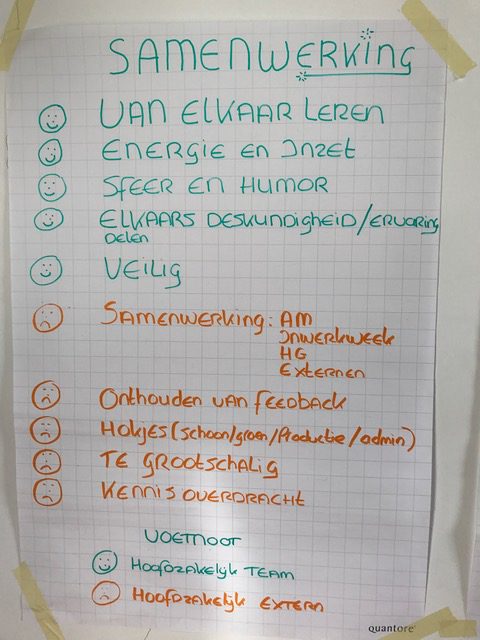 SAMENWERKING
VAN ELKAAR LEREN
ENERGIE EN INZET
SFEER EN HUMOR
ELKAARS DESKUNDIGHEID/ERVARING
DELEN
VEILIG
SAMENWERKING: AM
INWERKWEEK
HG
EXTERNEN
ONTHOUDEN VAN FEEDBACK
HOKJES (schoon/groen/Productie/admin)
TE GROOTSCHALIG
KENNIS OVERDRACHT
VOETNOOT
HOOFDZAKELIJK TEAM
HOOFDZAKELIJK EXTERN
quantore